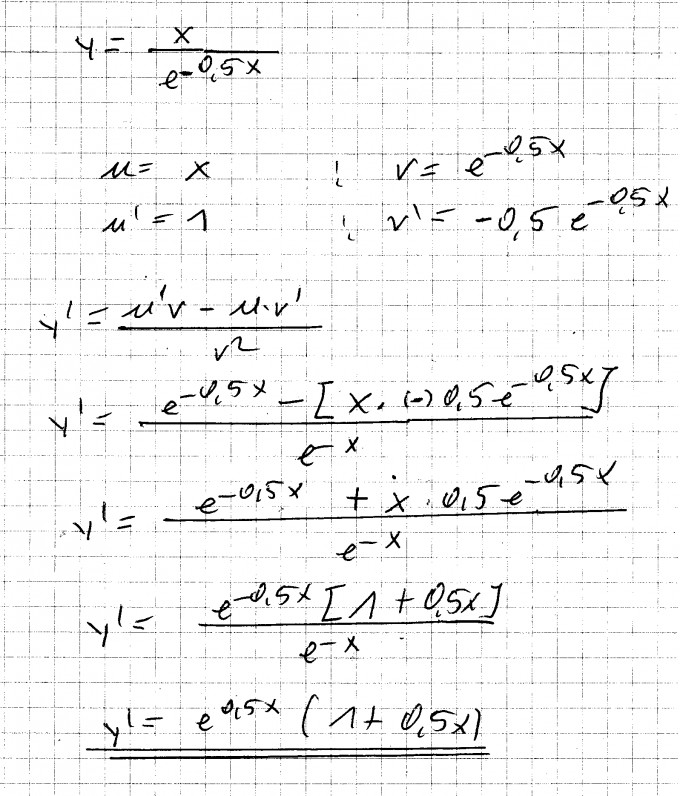 y = x / e^-0,5x
u = x ; v = e^-0,5x
u' = 1 ; v' = -0,5 e^-0,5x
y' = (u'v - u·v') / v²
y' = (e^-0,5x - [x·(-)0,5e^-0,5x]) / e^-x
y' = (e^-0,5x + x·0,5e^-0,5x) / e^-x
y' = e^-0,5x [1 + 0,5x] / e^-x
y' = e^0,5x (1 + 0,5x)